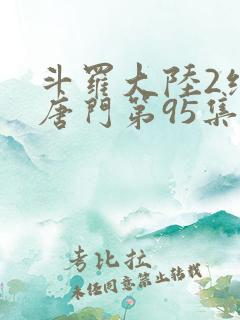 斗羅大陸2絕
唐門第95集
考比拉
未任同意禁止轉載